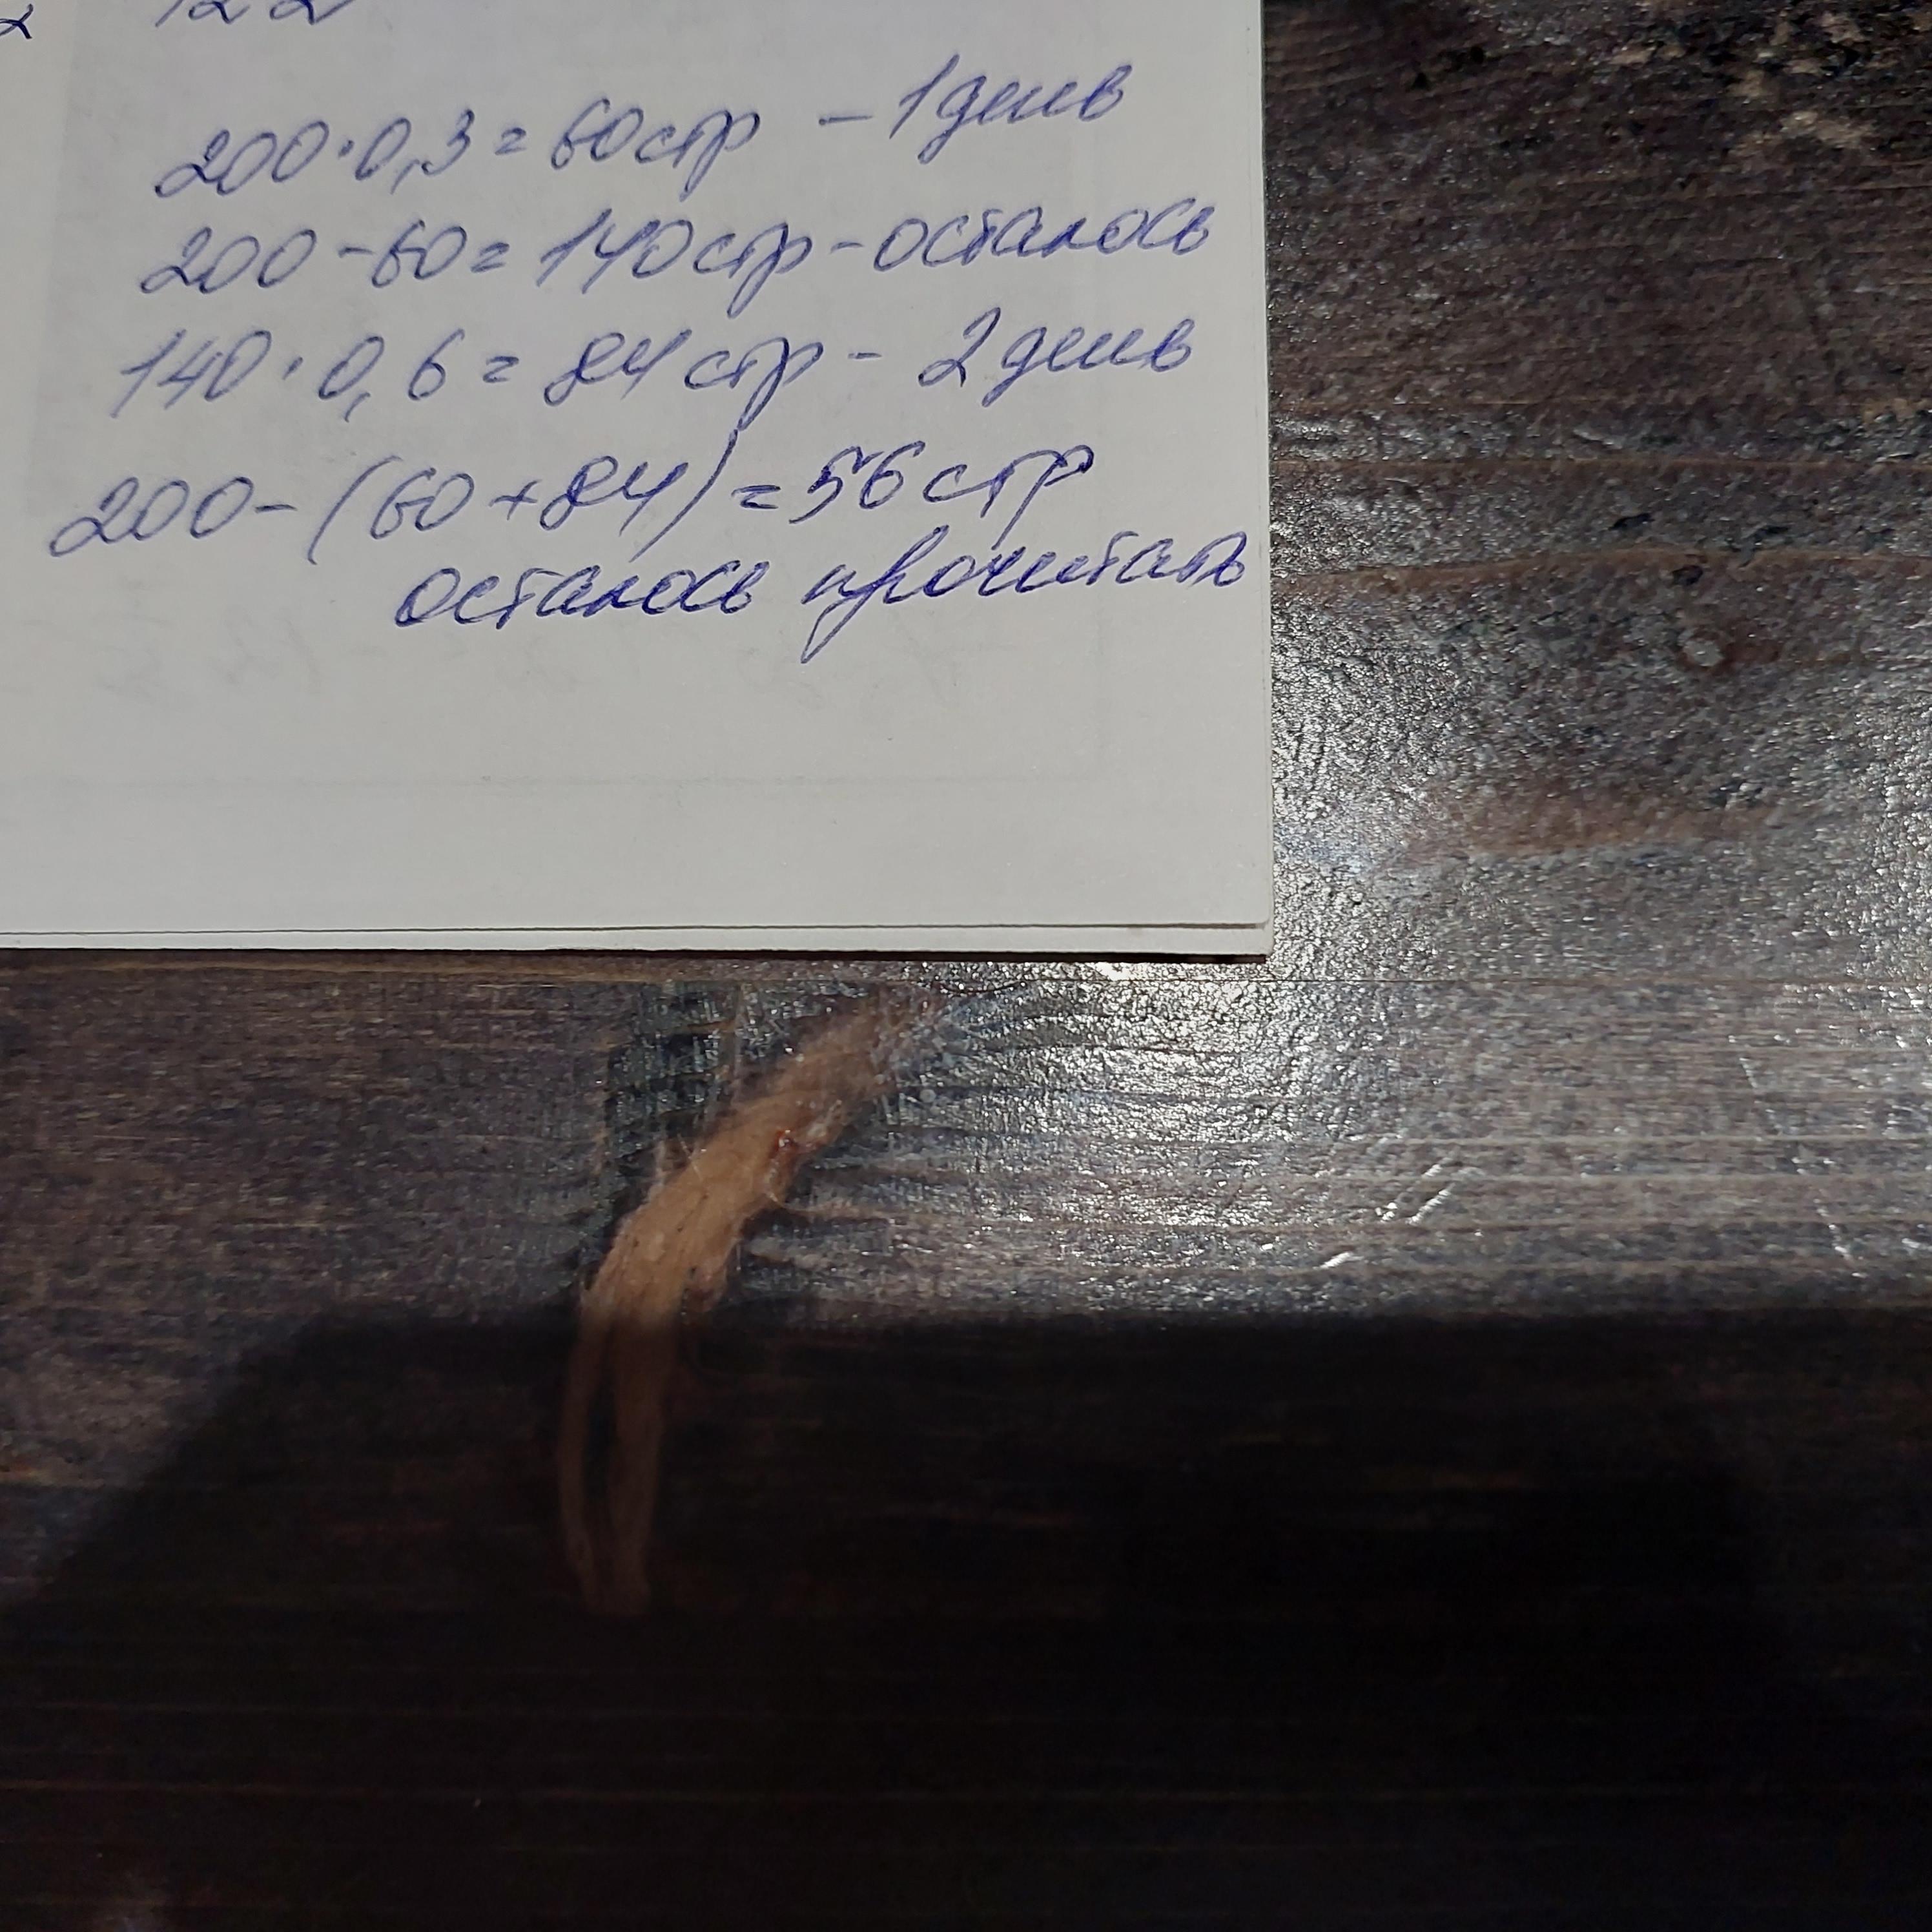 122
200·0,3=60стр – 1день
200-60=140стр-осталось
140·0,6=84стр- 2день
200-(60+84)=56стр
осталось прочитать